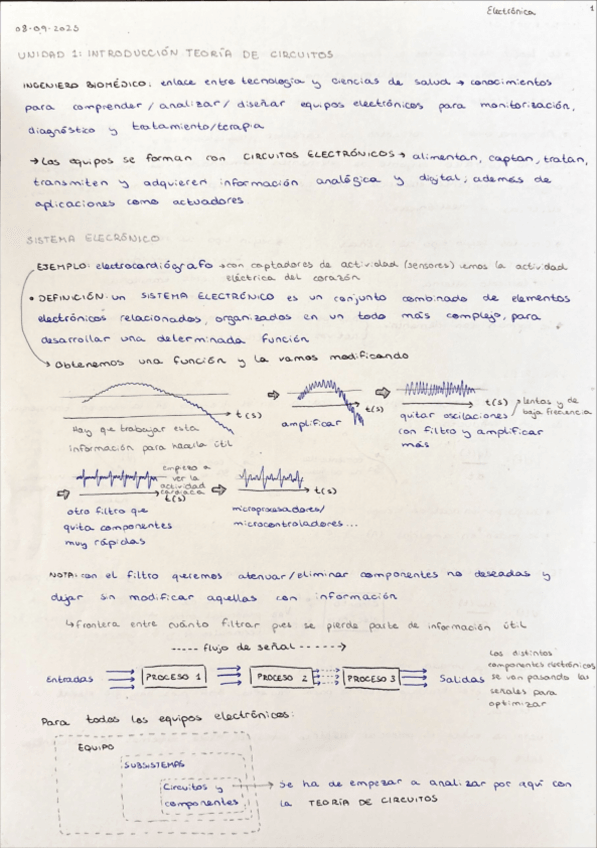 Electrónica
1
08-09-2023
UNIDAD 1: INTRODUCCIÓN TEORÍA DE CIRCUITOS
INGENIERO BIOMÉDICO: enlace entre tecnología y ciencias de salud → conocimientos
para comprender / analizar / diseñar equipos electrónicos para monitorización,
diagnóstico y tratamiento/terapia
→ Los equipos se forman con CIRCUITOS ELECTRÓNICOS → alimentan, captan, tratan,
transmiten y adquieren información analógica y digital; además de
aplicaciones como actuadores
SISTEMA ELECRÓNICO
EJEMPLO: electrocardiógrafo → con captadores de actividad (sensores) vemos la actividad
eléctrica del corazón
• DEFINICIÓN: un SISTEMA ELECTRÓNICO es un conjunto combinado de elementos
electrónicos relacionados, organizados en un todo más complejo, para
desarrollar una determinada función
→ Obtenemos una función y la vamos modificando
t(s)
Hay que trabajar esta
información para hacerla útil
t(s)
amplificar
t(s)
quitar oscilaciones
con filtro y amplificar
más
lentas y de
baja frecuencia
t(s)
empiezo a
ver la
actividad
cardíaca
otro filtro que
quita componentes
muy rápidas
t(s)
microprocesadores/
microcontroladores...
NOTA: con el filtro queremos atenuar/eliminar componentes no deseadas y
dejar sin modificar aquellas con información
↳ frontera entre cuánto filtrar pues se pierde parte de información útil
----- flujo de señal ------→
Entradas
PROCESO 1
PROCESO 2
PROCESO 3
Salidas
Los distintos
componentes electrónicos
se van pasando las
señales para
optimizar
Para todos los equipos electrónicos:
EQUIPO
SUBSISTEMAS
Circuitos y
componentes
→ Se ha de empezar a analizar por aquí con
la TEORÍA DE CIRCUITOS